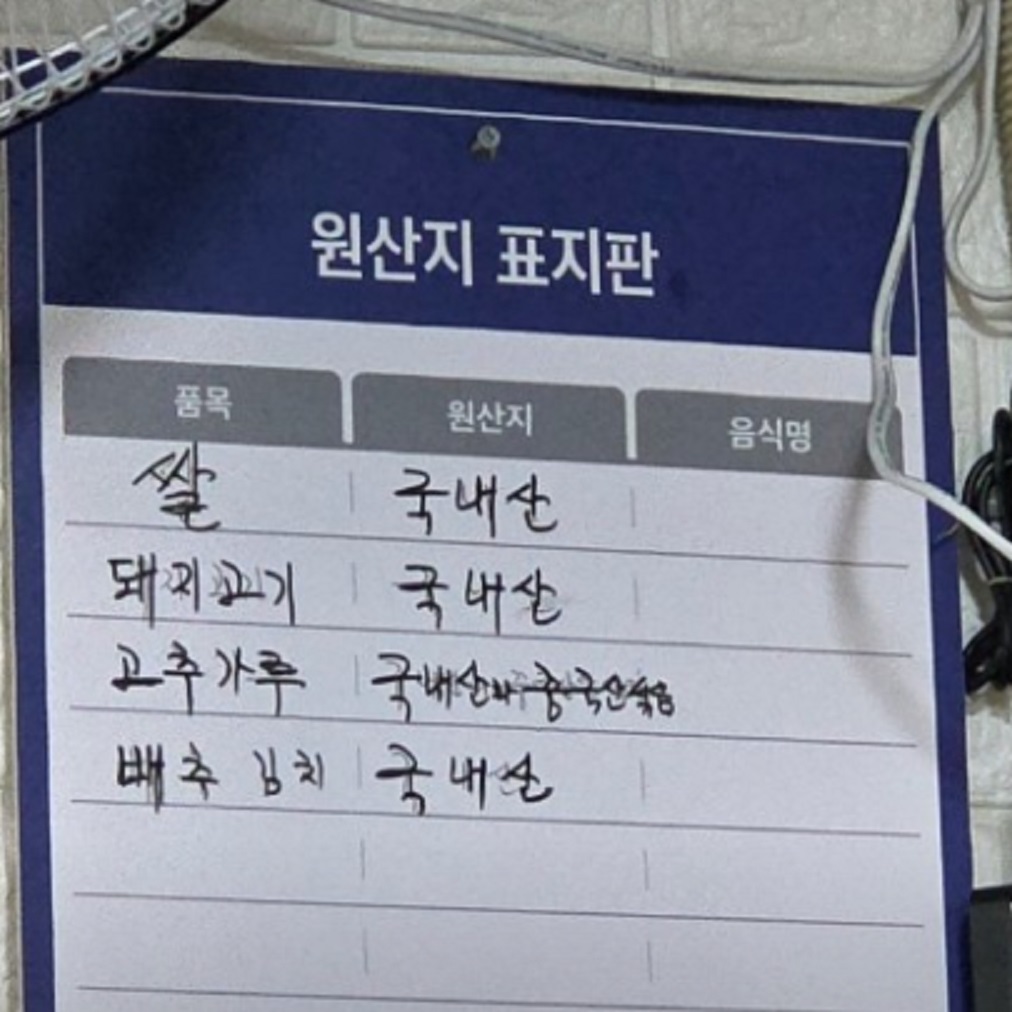 원산지 표지판
품목 원산지 음식명
쌀 국내산
돼지고기 국내산
고추가루 국내산와 중국산섞음
배추 김치 국내산